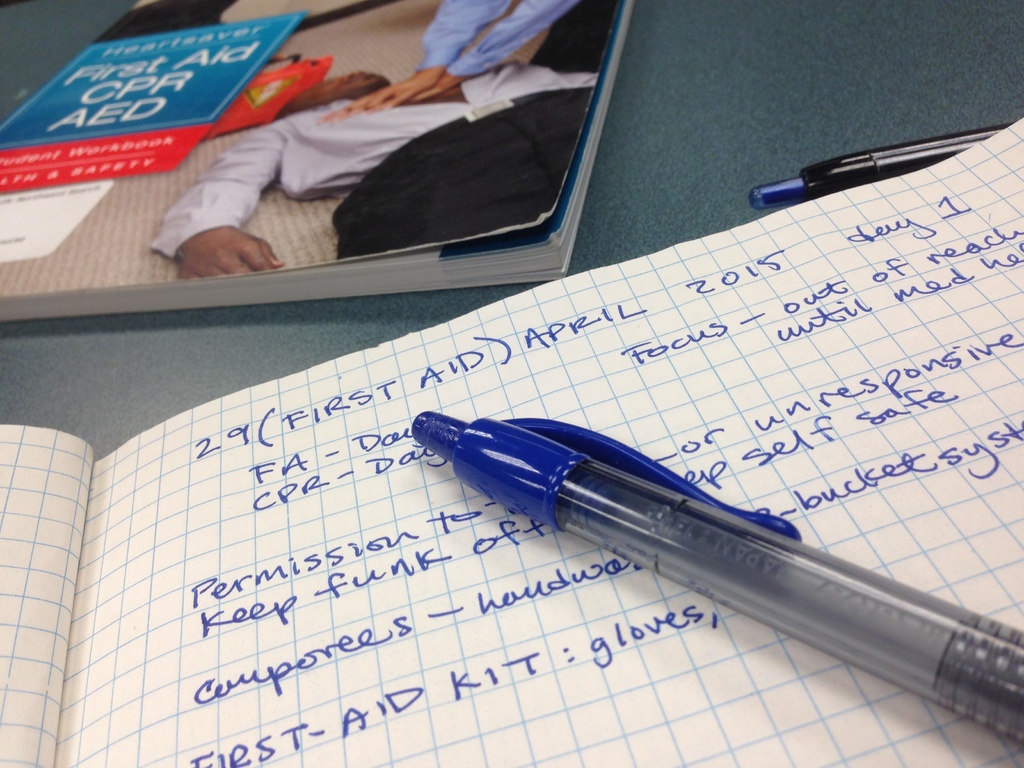 Heartsaver
First Aid
CPR
AED
Student Workbook
HEALTH & SAFETY
29 (FIRST AID) APRIL 2015 day 1
FA - Day
CPR - Day
Focus - out of reach
until med
Permission to - or unresponsive
keep funk off keep self safe
camporees - -bucket system
FIRST-AID KIT: gloves,
JAPAN